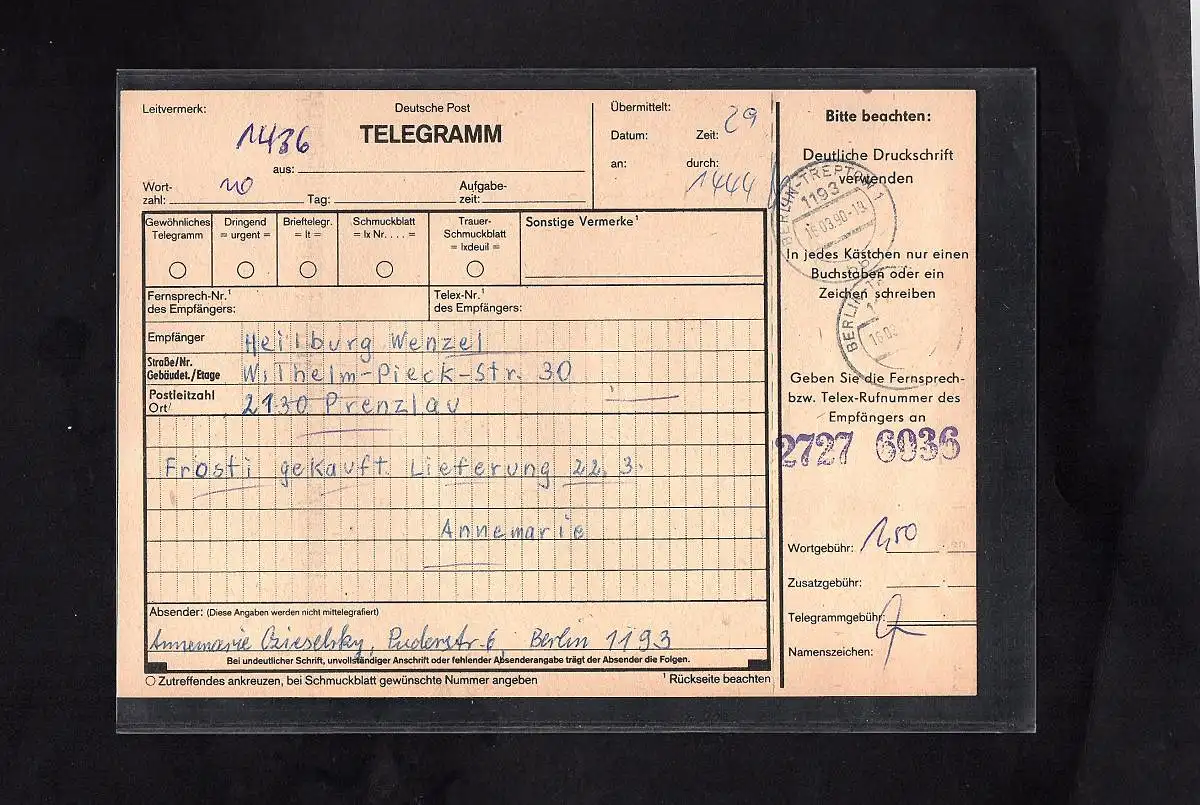 Leitvermerk:
1436
Deutsche Post
TELEGRAMM
aus:
Wort-
zahl:
Tag:
Aufgabe-
zeit:
Übermittelt:
29
Datum:
Zeit:
an:
durch:
1444
Gewöhnliches
Telegramm
Dringend
= urgent =
Brieftelegr.
= lt =
Schmuckblatt
= lx Nr. . . . =
Trauer-
Schmuckblatt
= lxdeuil =
Sonstige Vermerke¹
Fernsprech-Nr.¹
des Empfängers:
Telex-Nr.¹
des Empfängers:
Empfänger
Heilburg Wenzel
Straße/Nr.
Gebäudet./Etage
Wilhelm-Pieck-Str. 30
Postleitzahl
Ort
2130 Prenzlau
Frosti gekauft. Lieferung 22. 3.
Annemarie
Absender: (Diese Angaben werden nicht mittelegrafiert)
Annemarie Puderstr. 6, Berlin 1193
Bei undeutlicher Schrift, unvollständiger Anschrift oder fehlender Absenderangabe trägt der Absender die Folgen.
Zutreffendes ankreuzen, bei Schmuckblatt gewünschte Nummer angeben
¹ Rückseite beachten
Bitte beachten:
Deutliche Druckschrift
verwenden
BERLIN-TREPTOW 1
1193
16.03.90-19
In jedes Kästchen nur einen
Buchstaben oder ein
Zeichen schreiben
BERLIN-T
16.03
Geben Sie die Fernsprech-
bzw. Telex-Rufnummer des
Empfängers an
2727 6936
Wortgebühr: 1,50
Zusatzgebühr:
Telegrammgebühr:
Namenszeichen: